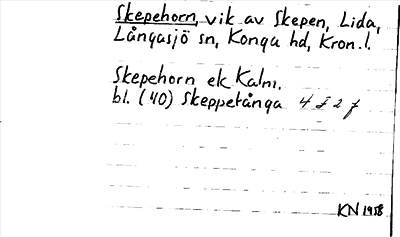 Skepehorn, vik av Skepen, Lida,
Långasjö sn, Konga hd, Kron. l.
Skepehorn ek Kalm.
bl. (40) Skeppetånga 4 F 2 f
KN 1958